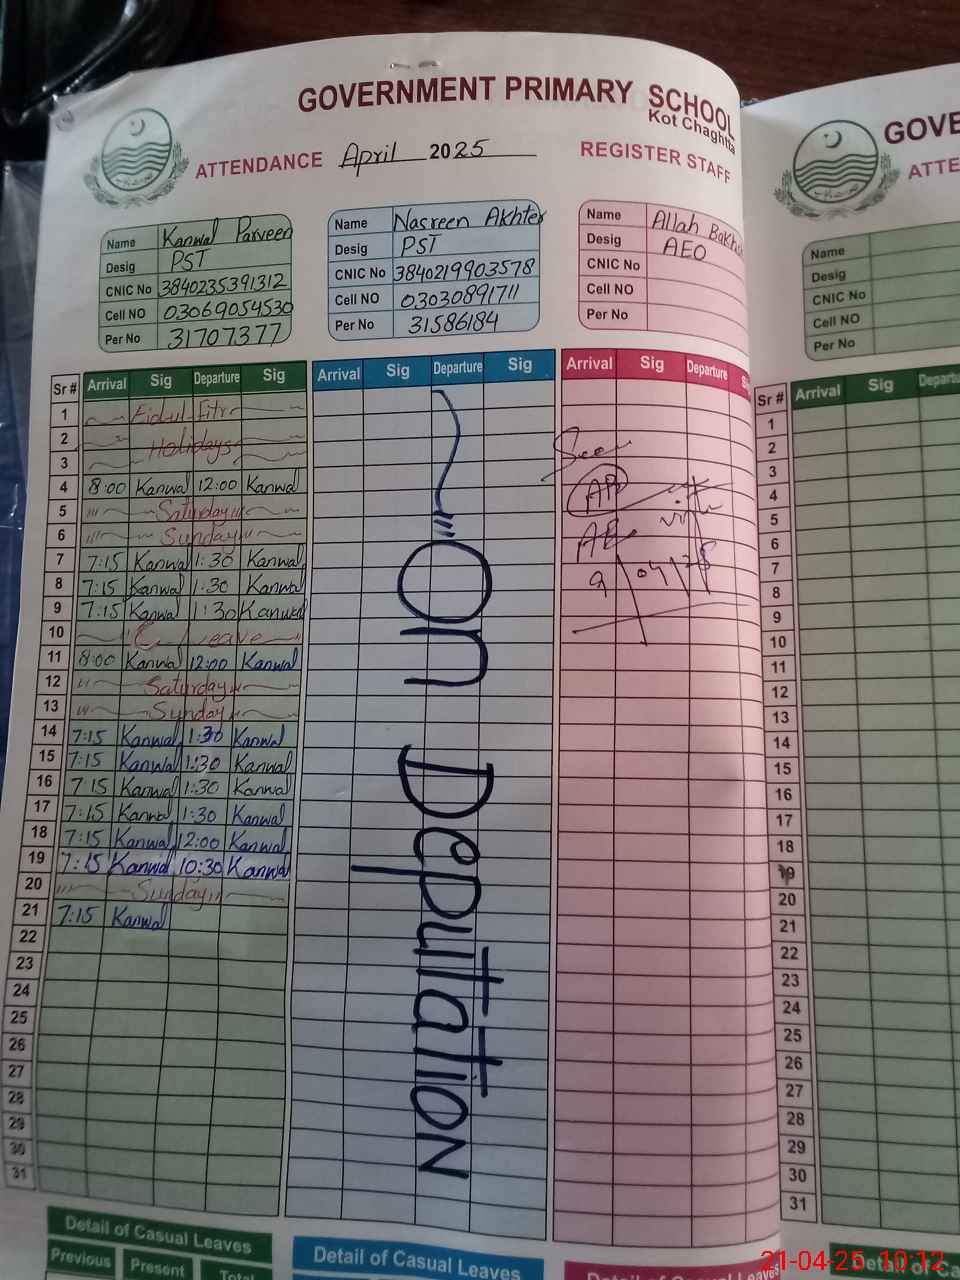 GOVERNMENT PRIMARY SCHOOL
Kot Chaghtta
ATTENDANCE April 2025 REGISTER STAFF
Name Kanwal Parveen
Desig PST
CNIC No 3840235391312
Cell NO 03069054530
Per No 31707377
Name Nasreen Akhter
Desig PST
CNIC No 3840219903578
Cell NO 03030891711
Per No 31586184
Name Allah Bakhsh
Desig AEO
CNIC No
Cell NO
Per No
Sr # Arrival Sig Departure Sig Arrival Sig Departure Sig Arrival Sig Departure
1 Eid-ul-Fitr
2 Holidays
3
4 8:00 Kanwal 12:00 Kanwal
5 Saturday
6 Sunday
7 7:15 Kanwal 1:30 Kanwal
8 7:15 Kanwal 1:30 Kanwal
9 7:15 Kanwal 1:30 Kanwal
10 C. Leave
11 8:00 Kanwal 12:00 Kanwal
12 Saturday
13 Sunday
14 7:15 Kanwal 1:30 Kanwal
15 7:15 Kanwal 1:30 Kanwal
16 7:15 Kanwal 1:30 Kanwal
17 7:15 Kanwal 1:30 Kanwal
18 7:15 Kanwal 12:00 Kanwal
19 7:15 Kanwal 10:30 Kanwal
20 Sunday
21 7:15 Kanwal
22
23
24
25
26
27
28
29
30
31
On Deputation
Seen
9/04/25
Detail of Casual Leaves
Previous Present Total
Detail of Casual Leaves
Detail of Casual Leaves
GOVE
ATTE
Name
Desig
CNIC No
Cell NO
Per No
Sr # Arrival Sig Departu
1
2
3
4
5
6
7
8
9
10
11
12
13
14
15
16
17
18
19
20
21
22
23
24
25
26
27
28
29
30
31
Detail of Ca
21-04-25 10:12